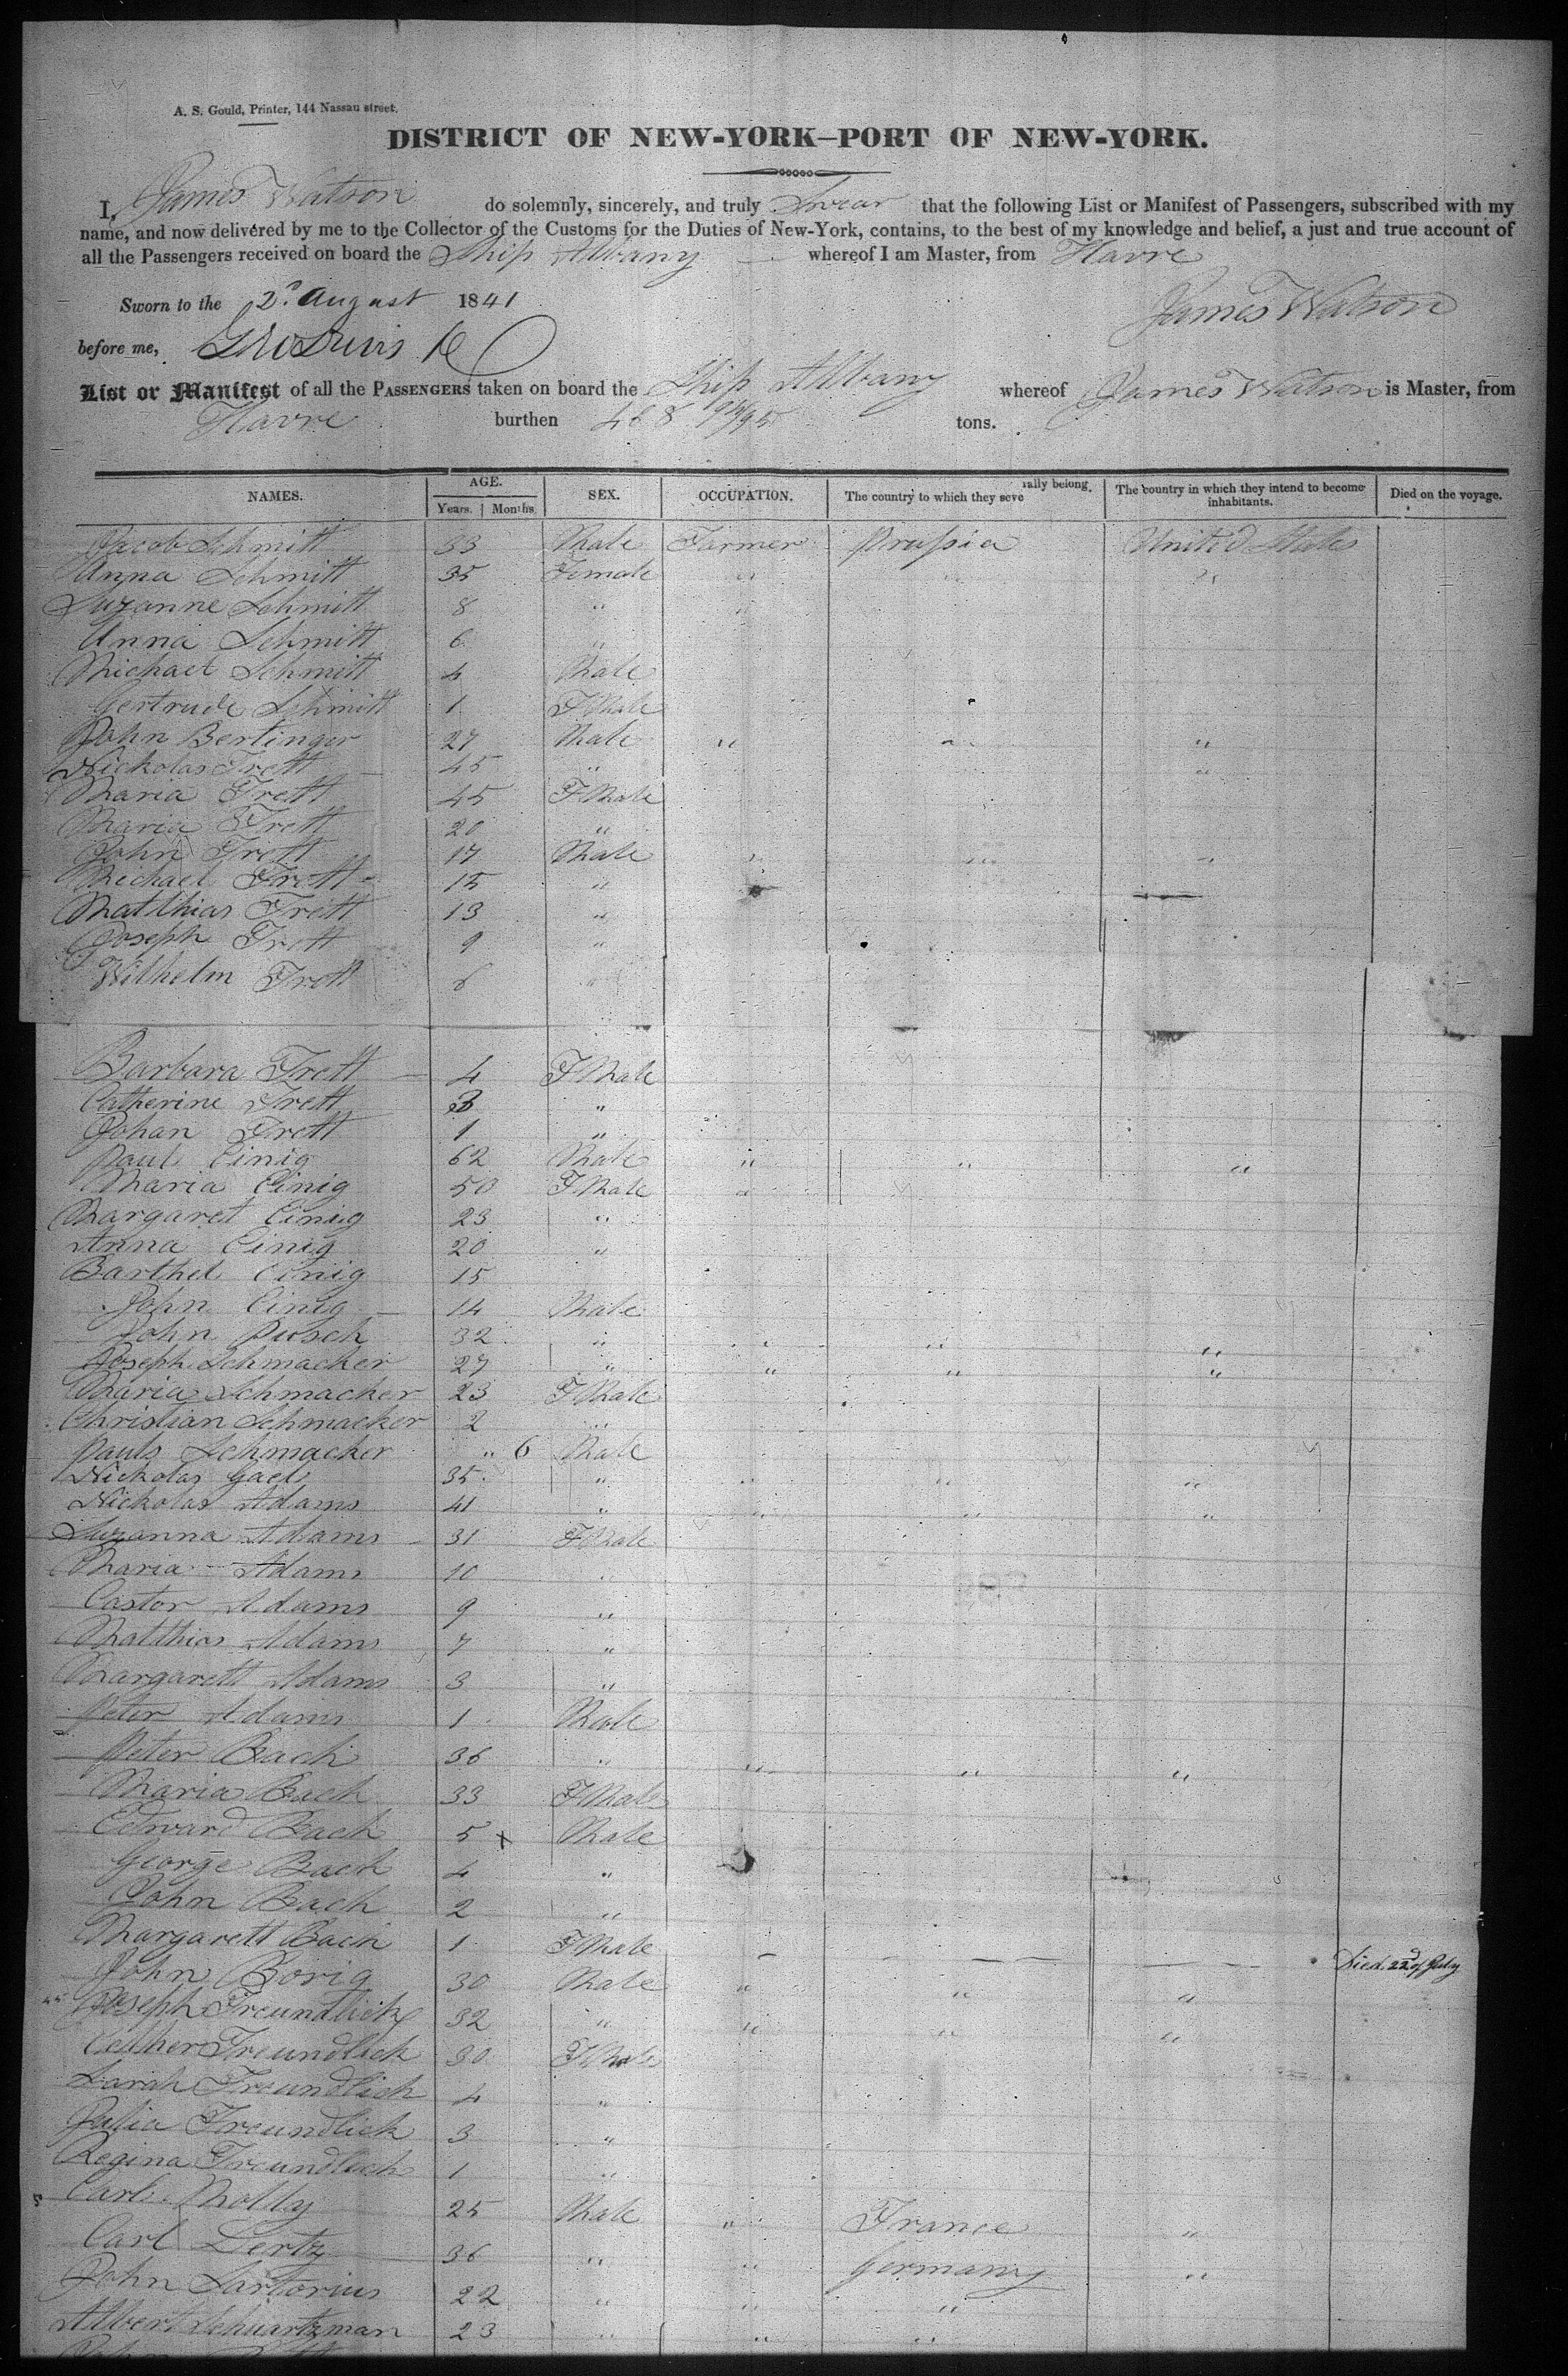 A. S. Gould, Printer, 144 Nassau street.
DISTRICT OF NEW-YORK—PORT OF NEW-YORK.
I, James Watson do solemnly, sincerely, and truly Swear that the following List or Manifest of Passengers, subscribed with my
name, and now delivered by me to the Collector of the Customs for the Duties of New-York, contains, to the best of my knowledge and belief, a just and true account of
all the Passengers received on board the Ship Albany whereof I am Master, from Havre
Sworn to the 2d August 1841 James Watson
before me,
List or Manifest of all the PASSENGERS taken on board the Ship Albany whereof James Watson is Master, from
Havre burthen 468 94/95 tons.
NAMES. AGE. Years. Months. SEX. OCCUPATION. The country to which they severally belong. The country in which they intend to become inhabitants. Died on the voyage.
Jacob Schmitt 33 Male Farmer Prussia United States
Anna Schmitt 35 Female " " "
Suzanne Schmitt 8 " "
Anna Schmitt 6 "
Michael Schmitt 4 Male
Gertrude Schmitt 1 FMale
John Bertinger 27 Male " " "
Nickolas Trett 45 " "
Maria Trett 45 FMale
Maria Trett 20 "
John Trett 17 Male " " "
Michael Trett 15 "
Matthias Trett 13 "
Joseph Trett 9 "
Wilhelm Trett 6 "
Barbara Trett 4 FMale
Catherine Trett 3 "
Johan Trett 1 "
Paul Einig 62 Male " " "
Maria Einig 50 FMale "
Margaret Einig 23 "
Anna Einig 20 "
Barthel Einig 15
John Einig 14 Male
John Pusch 32 " " " "
Joseph Schmacker 27 " " " "
Maria Schmacker 23 FMale
Christian Schmacker 2 "
Pauls Schmacker " 6 Male
Nickolas Gael 35 " " " "
Nickolas Adams 41 " " " "
Suzanna Adams 31 FMale
Maria Adams 10 "
Castor Adams 9 "
Matthias Adams 7 "
Margarett Adams 3 "
Peter Adams 1 Male
Peter Bach 36 " " " "
Maria Bach 33 FMale
Edward Bach 5 x Male
George Bach 4 "
John Bach 2 "
Margarett Bach 1 FMale Died 22d of July
John Borig 30 Male " " "
Joseph Freundlich 32 " " " "
Freundlich 30 FMale
Sarah Freundlich 4 "
Julia Freundlich 3 "
Regina Freundlich 1 "
Carl Molly 25 Male " France "
Carl Lertz 36 " " Germany "
John Sartorius 22 " " "
Albert Schuartzman 23 " " "